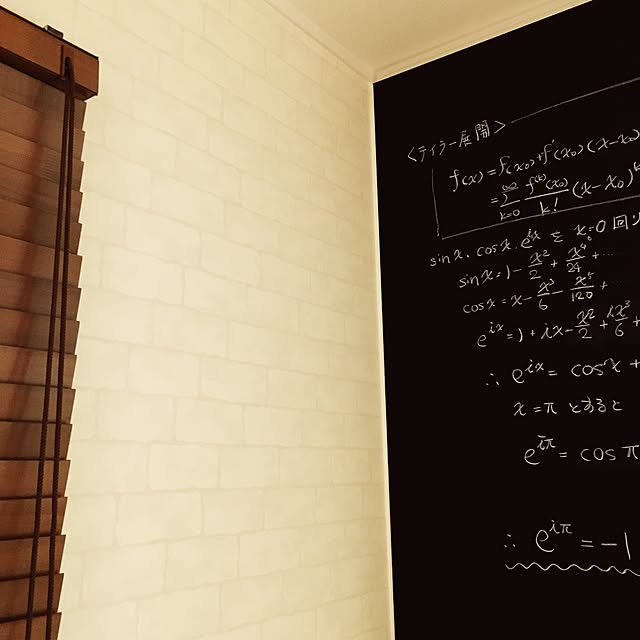 <テイラー展開>
f(x) = f(x₀) + f'(x₀)(x-x₀)
= ∑_{k=0}^{∞} f^{(k)}(x₀)/k! (x-x₀)^k
sin x, cos x, e^{ix} を x₀=0 回り
sin x = 1 - x²/2 + x⁴/24 + ...
cos x = x - x³/6 - x⁵/120 + ...
e^{ix} = 1 + ix - x²/2 + ix³/6 +
∴ e^{ix} = cos x +
x = π とすると
e^{iπ} = cos π
∴ e^{iπ} = -1